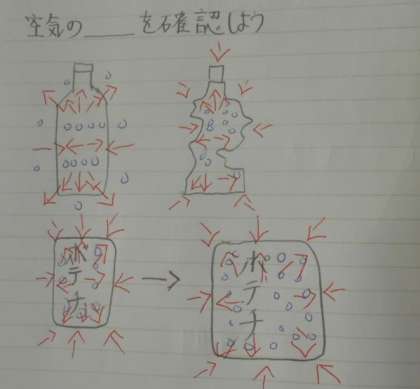 空気の____を確認しよう
ポテチ
ポテチ